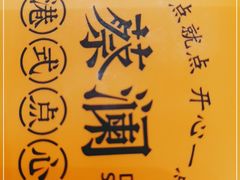 点就点 开心一
蔡澜
港式点心